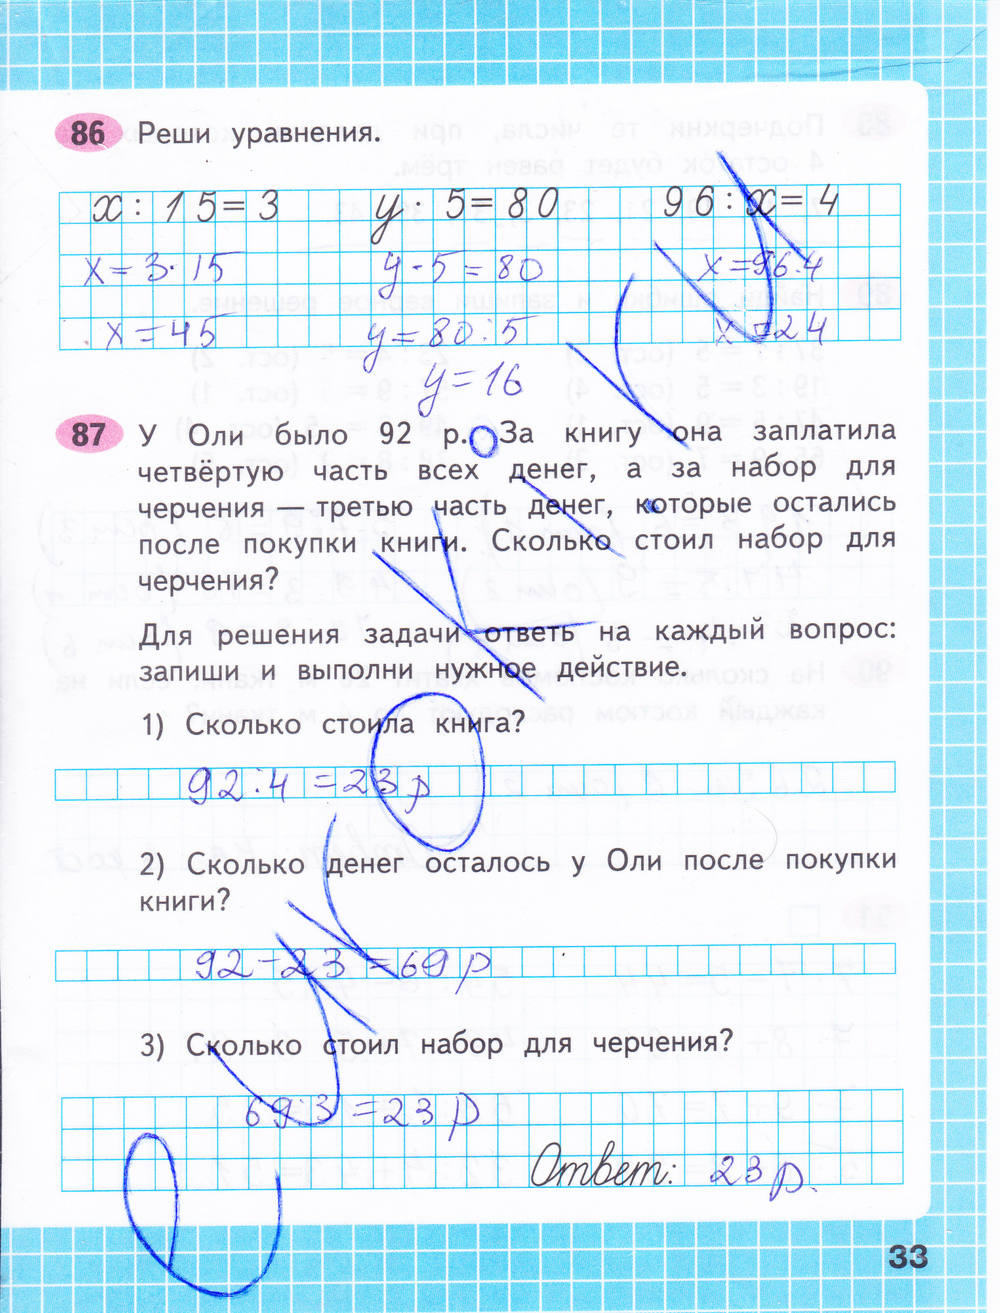 86 Реши уравнения.
x : 15 = 3 y 5 = 80 96 : x = 4
x = 3 · 15 y · 5 = 80 x = 96 : 4
x = 45 y = 80 : 5 x = 24
y = 16
87 У Оли было 92 р. За книгу она заплатила
четвёртую часть всех денег, а за набор для
черчения — третью часть денег, которые остались
после покупки книги. Сколько стоил набор для
черчения?
Для решения задачи ответь на каждый вопрос:
запиши и выполни нужное действие.
1) Сколько стоила книга?
92 : 4 = 23 р
2) Сколько денег осталось у Оли после покупки
книги?
92 – 23 = 69 р
3) Сколько стоил набор для черчения?
69 : 3 = 23 р
Ответ: 23 р.
33